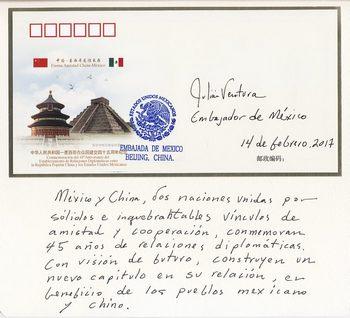 中国·墨西哥友谊长存
Eterna Amistad China-México
Julián Ventura
Embajador de México
ESTADOS UNIDOS MEXICANOS
EMBAJADA DE MEXICO
BEIJING, CHINA.
14 de febrero, 2017
邮政编码:
中华人民共和国—墨西哥合众国建交四十五周年纪念
Conmemoración del 45°Aniversario del
Establecimiento de Relaciones Diplomáticas entre
la República Popular China y los Estados Unidos Mexicanos
México y China, dos naciones unidas por
sólidos e inquebrantables vínculos de
amistad y cooperación, conmemoran
45 años de relaciones diplomáticas.
Con visión de futuro, construyen un
nuevo capítulo en su relación, en
beneficio de los pueblos mexicano
y chino.